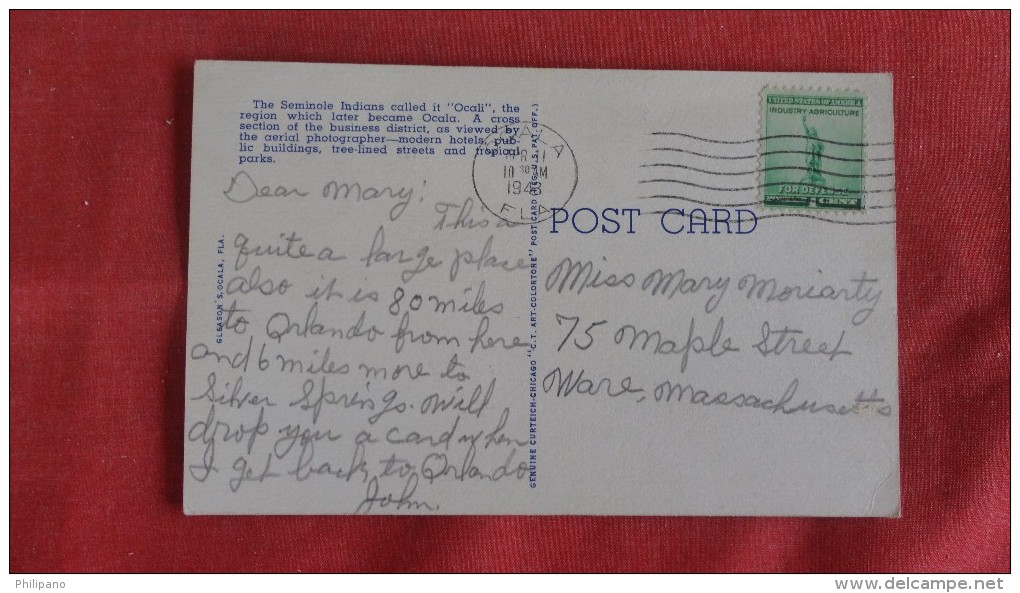 The Seminole Indians called it "Ocali", the
region which later became Ocala. A cross
section of the business district, as viewed by
the aerial photographer—modern hotels, pub-
lic buildings, tree-lined streets and tropical
parks.
Dear Mary:
This is
quite a large place
also it is 80 miles
to Orlando from here
and 6 miles more to
Silver Springs. Will
drop you a card when
I get back to Orlando
John.
GLEASON'S, OCALA, FLA.
GENUINE CURTEICH-CHICAGO "C.T. ART-COLORTONE" POST CARD (REG. U.S. PAT. OFF.)
OCALA
10 30 AM
FLA
UNITED STATES OF AMERICA
INDUSTRY AGRICULTURE
FOR DEFENSE
1 CENT
POST CARD
Miss Mary Moriarty
75 Maple Street
Ware, Massachusetts
Philipano
www.delcampe.net